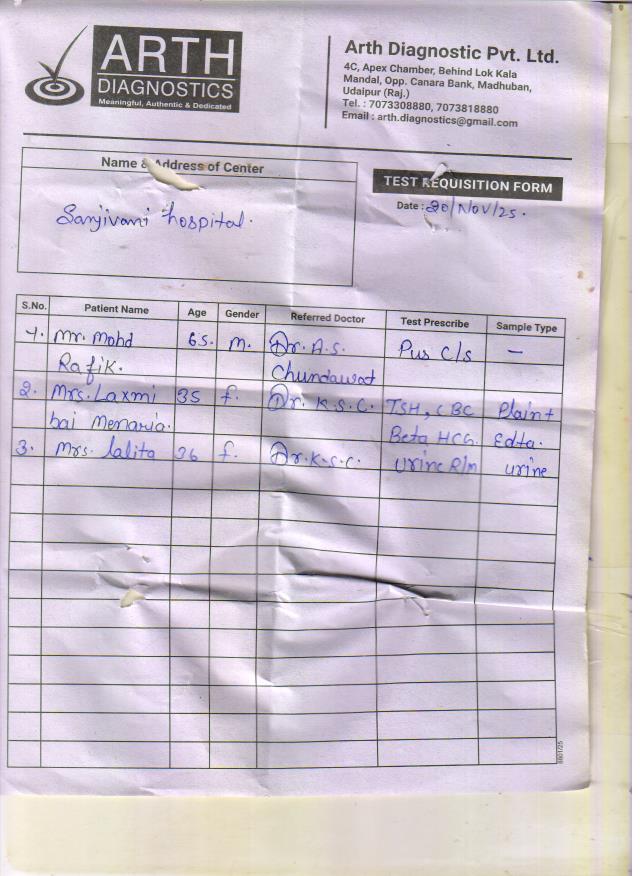 ARTH
DIAGNOSTICS
Meaningful, Authentic & Dedicated
Arth Diagnostic Pvt. Ltd.
4C, Apex Chamber, Behind Lok Kala
Mandal, Opp. Canara Bank, Madhuban,
Udaipur (Raj.)
Tel. : 7073308880, 7073818880
Email : arth.diagnostics@gmail.com
Name & Address of Center
Sanjivani hospital.
TEST REQUISITION FORM
Date : 20/Nov/25.
S.No. Patient Name Age Gender Referred Doctor Test Prescribe Sample Type
1. Mr. Mohd 65. M. Dr. A.S. Pus C/s —
Rafik. Chundawat
2. Mrs. Laxmi 35 f. Dr. K.S.C. TSH, CBC Plain +
bai Menaria. Beta HCG. Edta.
3. Mrs. lalita 36 f. Dr. K.S.C. Urine R/m urine